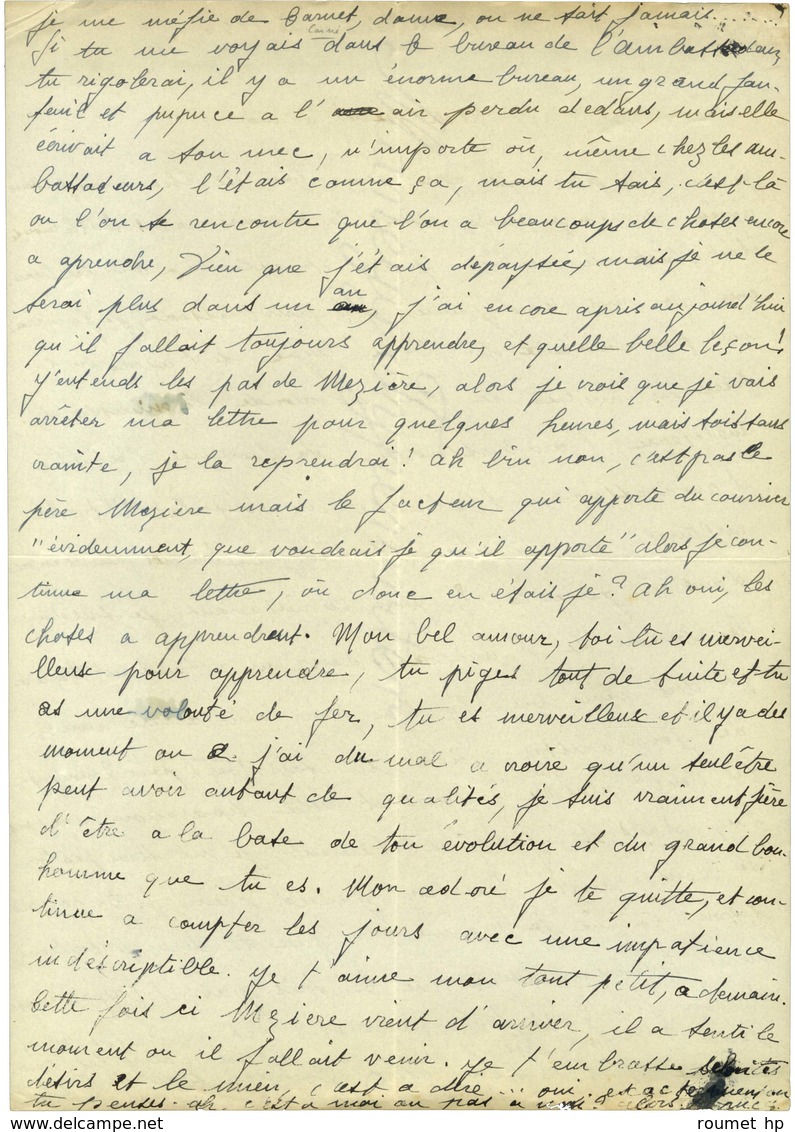 je me méfie de Carnet, dame, on ne sait jamais.......
Si tu me voyais dans le bureau de l'ambassadeur,
tu rigolerai, il y a un énorme bureau, un grand fau-
teuil et pupuce a l'air perdu dedans, mais elle
écrivait a son mec, n'importe où, même chez les am-
bassadeurs, l'étais comme ça, mais tu sais, c'est là
ou l'on se rencontre que l'on a beaucoups de choses encore
a aprendre, Vien que j'étais dépaysée, mais je ne le
serai plus dans un an, j'ai encore apris aujourd'hui
qu'il fallait toujours apprendre, et quelle belle leçon!
J'entends les pas de Mezière, alors je crois que je vais
arrêter ma lettre pour quelques heures, mais sois sans
crainte, je la reprendrai! Ah bin non, c'est pas le
père Mezière mais le facteur qui apporte du courrier
"évidemment, que voudrais je qu'il apporte" alors je con-
tinue ma lettre, où donc en étais je? Ah oui, les
choses a apprendrent. Mon bel amour, toi tu es mervei-
lleux pour apprendre, tu piges tout de suite et tu
as une volonté de fer, tu es merveilleux et il y a des
moment ou j'ai du mal a croire qu'un seul être
peut avoir autant de qualités, je suis vraiment fière
d'être a la base de ton évolution et du grand bon-
homme que tu es. Mon adoré je te quitte, et con-
tinue a compter les jours avec une impatience
indéscriptible. Je t'aime mon tout pétit, a demain.
Cette fois ci Mezière vient d'arriver, il a senti le
moment ou il fallait venir. Je t'embrasse
désirs et le mien, c'est a dire... oui, exactement
tu penses. ah, c'est a moi ou pas a moi?
roumet hp